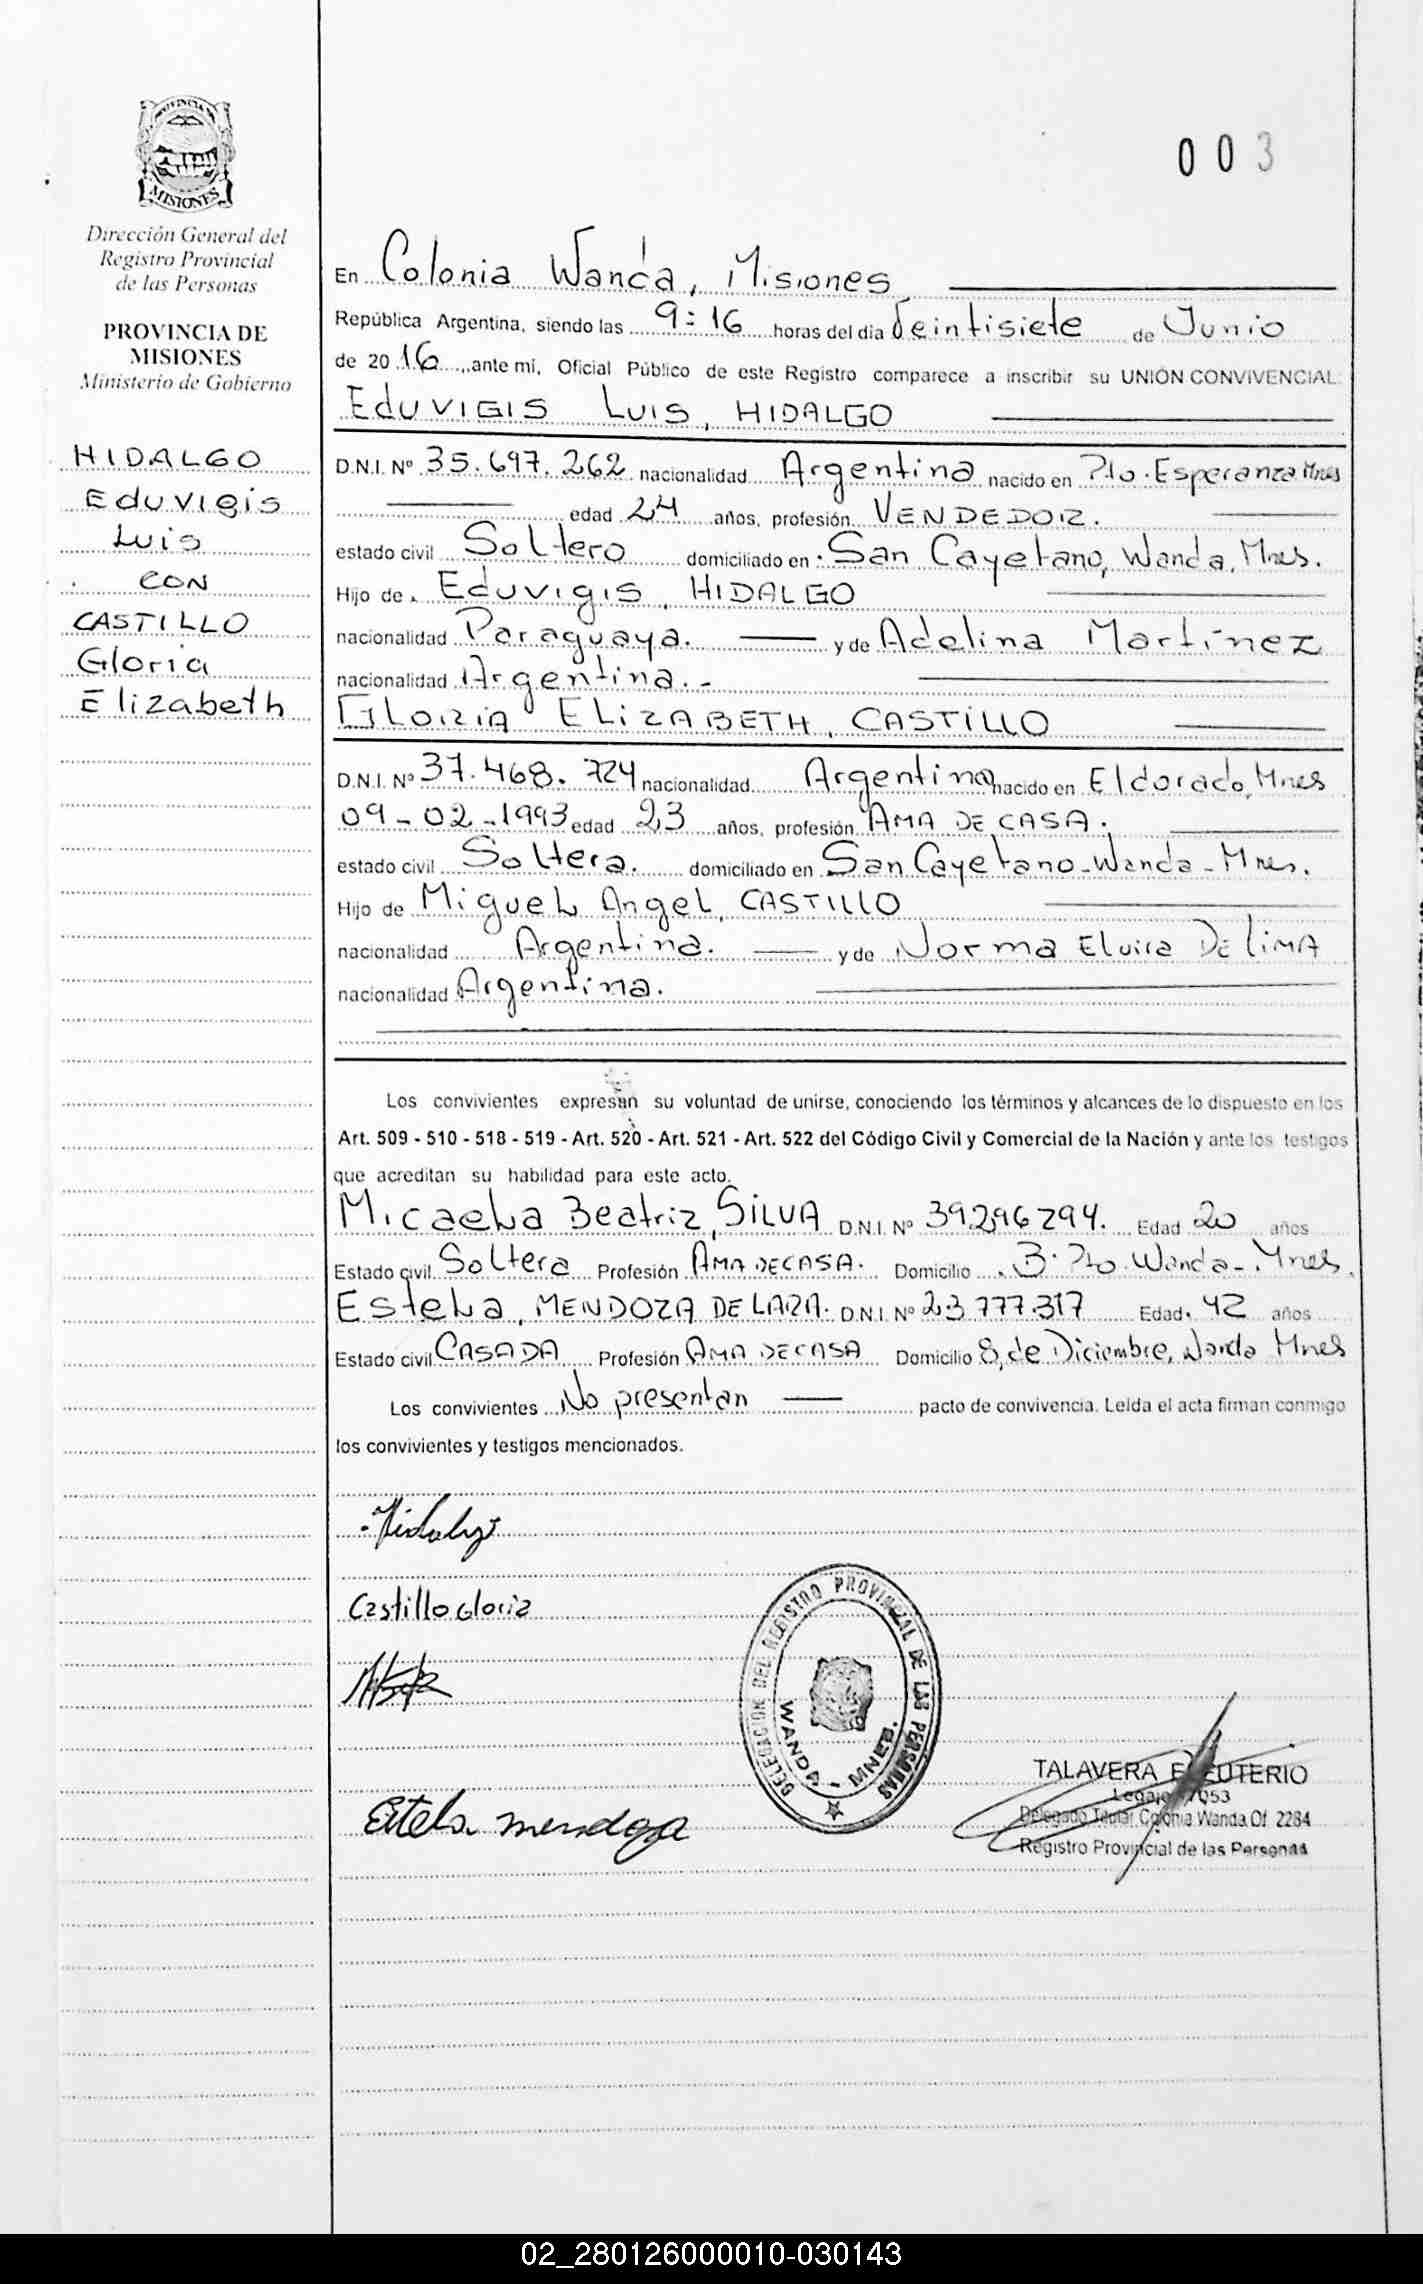 003
PROVINCIA DE
MISIONES
Dirección General del
Registro Provincial
de las Personas
PROVINCIA DE
MISIONES
Ministerio de Gobierno
HIDALGO
Eduvigis
Luis
CON
CASTILLO
Gloria
Elizabeth
En Colonia Wanda, Misiones
República Argentina, siendo las 9:16 horas del día Veintisiete de Junio
de 2016, ante mí, Oficial Público de este Registro comparece a inscribir su UNIÓN CONVIVENCIAL:
EDUVIGIS LUIS, HIDALGO
D.N.I. Nº 35.697.262 nacionalidad Argentina nacido en Pto. Esperanza Mnes
edad 24 años, profesión VENDEDOR.
estado civil Soltero domiciliado en San Cayetano, Wanda, Mnes.
Hijo de Eduvigis, HIDALGO
nacionalidad Paraguaya. y de Adelina Martínez
nacionalidad Argentina.-
GLORIA ELIZABETH, CASTILLO
D.N.I. Nº 37.468.724 nacionalidad Argentina nacido en Eldorado, Mnes
09-02-1993 edad 23 años, profesión AMA DE CASA.
estado civil Soltera. domiciliado en San Cayetano-Wanda-Mnes.
Hijo de Miguel Angel, CASTILLO
nacionalidad Argentina. y de Norma Elvira DE LIMA
nacionalidad Argentina.
Los convivientes expresan su voluntad de unirse, conociendo los términos y alcances de lo dispuesto en los
Art. 509 - 510 - 518 - 519 - Art. 520 - Art. 521 - Art. 522 del Código Civil y Comercial de la Nación y ante los testigos
que acreditan su habilidad para este acto.
Micaela Beatriz, SILVA D.N.I. Nº 39.296.794. Edad 20 años
Estado civil Soltera Profesión AMA DE CASA. Domicilio Bº Pto Wanda-Mnes.
Estela, MENDOZA DE LARA. D.N.I. Nº 23.777.317 Edad 42 años
Estado civil CASADA Profesión AMA DE CASA Domicilio 8 de Diciembre, Wanda Mnes
Los convivientes No presentan pacto de convivencia. Leída el acta firman conmigo
los convivientes y testigos mencionados.
Hidalgo
Castillo Gloria
DELEGACION DEL REGISTRO PROVINCIAL DE LAS PERSONAS
WANDA - MNES.
Estela mendoza
TALAVERA ELEUTERIO
Legajo 7053
Delegado Titular Colonia Wanda Of. 2284
Registro Provincial de las Personas
02_280126000010-030143